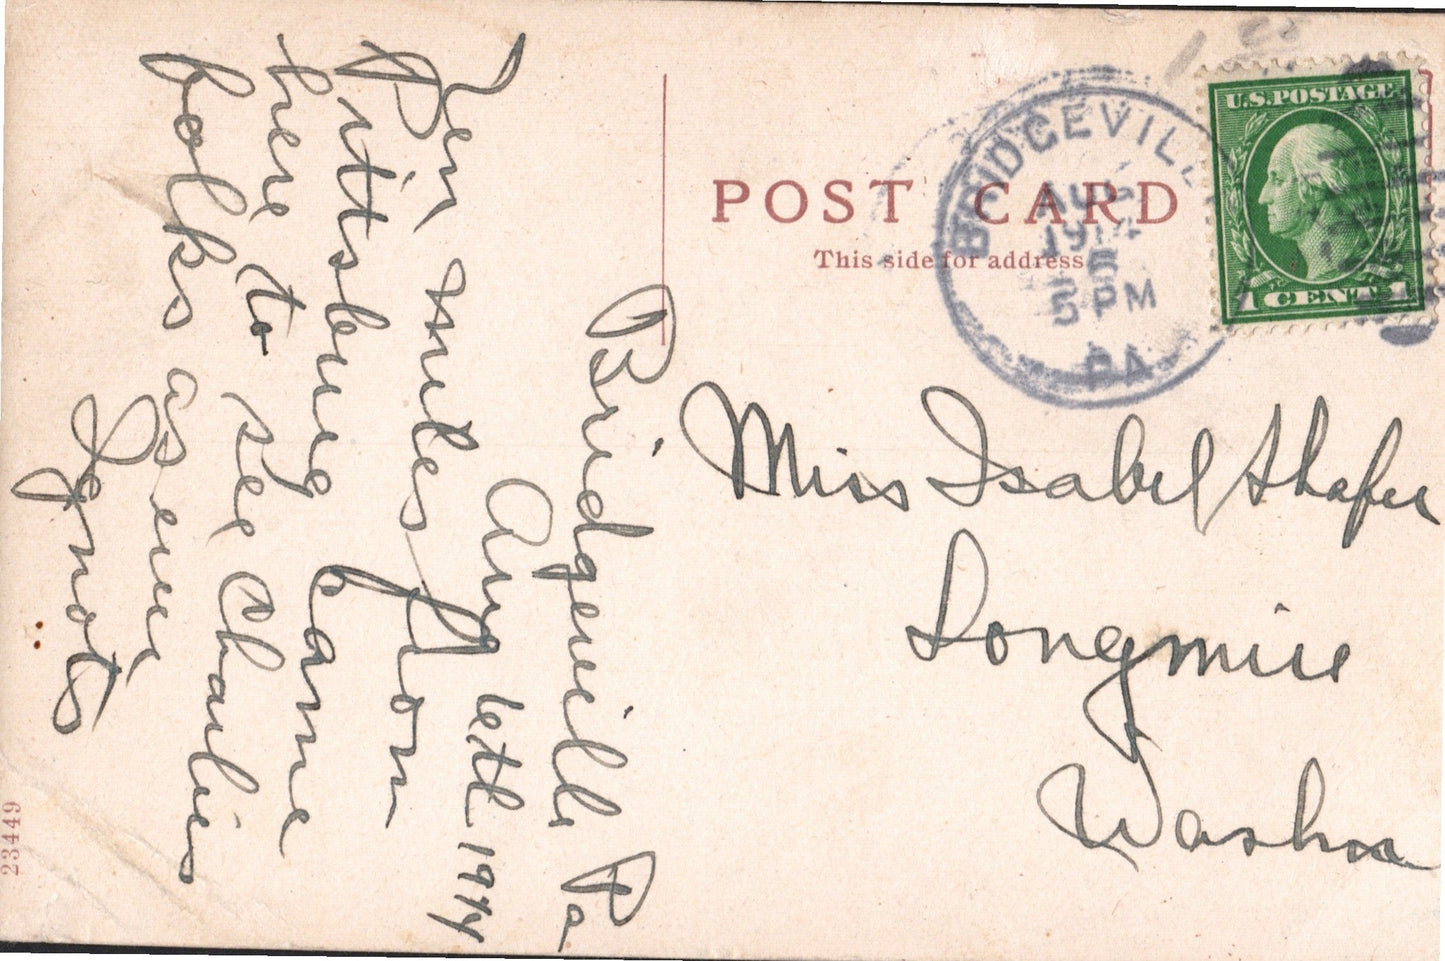 POST CARD
This side for address
BRIDGEVILLE
AUG
1914
5 PM
PA.
U.S.POSTAGE
1 CENT 1
Miss Isabel Shafer
Longmire
Washn
Bridgeville Pa
Aug 6th 1914
Ten miles from
Pittsburg Came
here to see Charlies
folks as ever
23449